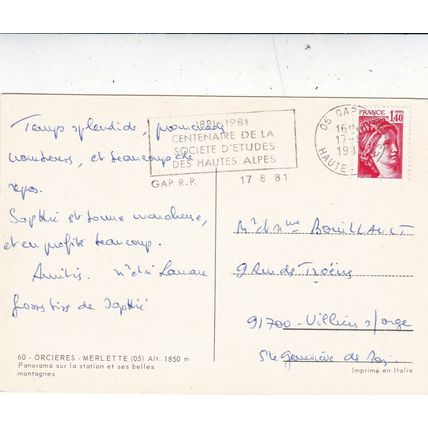 Temps splendide, promenades
nombreuses, et beaucoup de
repos.
Sophie est bonne marcheuse,
et en profite beaucoup.
Amitiés.
de Sophie
1881-1981
CENTENAIRE DE LA
SOCIETE D'ETUDES
DES HAUTES ALPES
GAP R.P. 17 8 81
05 GAP
16H
17-
198
HAUTE
FRANCE
1,40
M et Mme BOUILLAULT
9 Rue de
91700 - Villiers s/orge
Ste Geneviève de
60 - ORCIERES - MERLETTE (05) Alt. 1850 m
Panorama sur la station et ses belles
montagnes
Imprimé en Italie